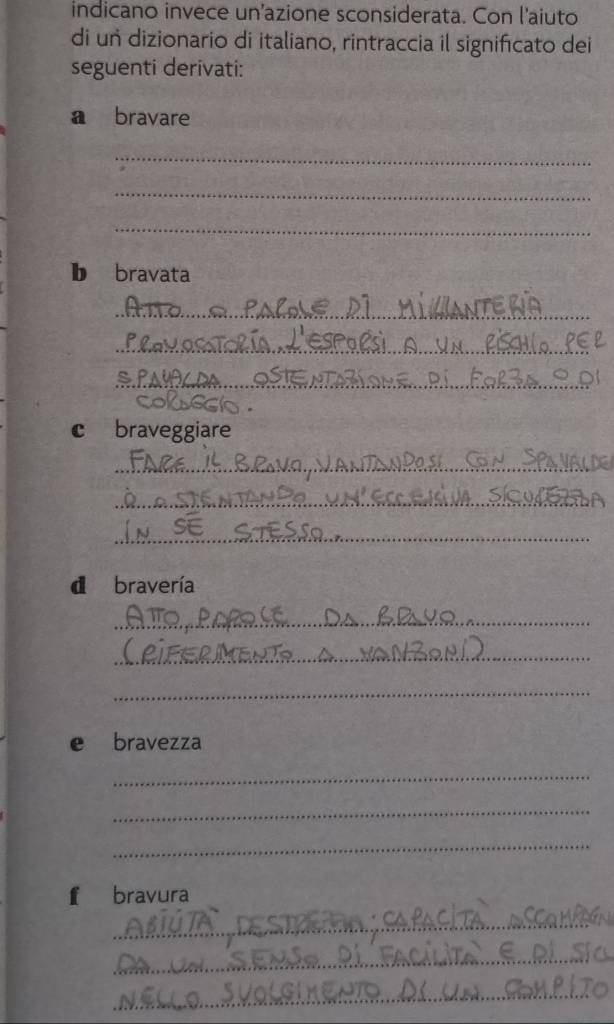 indicano invece un'azione sconsiderata. Con l'aiuto
di un dizionario di italiano, rintraccia il significato dei
seguenti derivati:
a bravare
b bravata
ATTO O PAROLE DI MILLANTERIA
PROVOCATORIA, L'ESPORSI A UN RISCHIO PER
SPAVALDA OSTENTAZIONE DI FORZA O DI
CORAGGIO.
c braveggiare
FARE IL BRAVO, VANTANDOSI CON SPAVALDE
O OSTENTANDO UN'ECCESSIVA SICUREZZA
IN SÉ STESSO.
d bravería
ATTO, PAROLE DA BRAVO.
(RIFERIMENTO A MANZONI)
e bravezza
f bravura
ABILITÀ, DESTREZZA; CAPACITÀ ACCOMPAGN
DA UN SENSO DI FACILITÀ E DI SICU
NELLO SVOLGIMENTO DI UN COMPITO